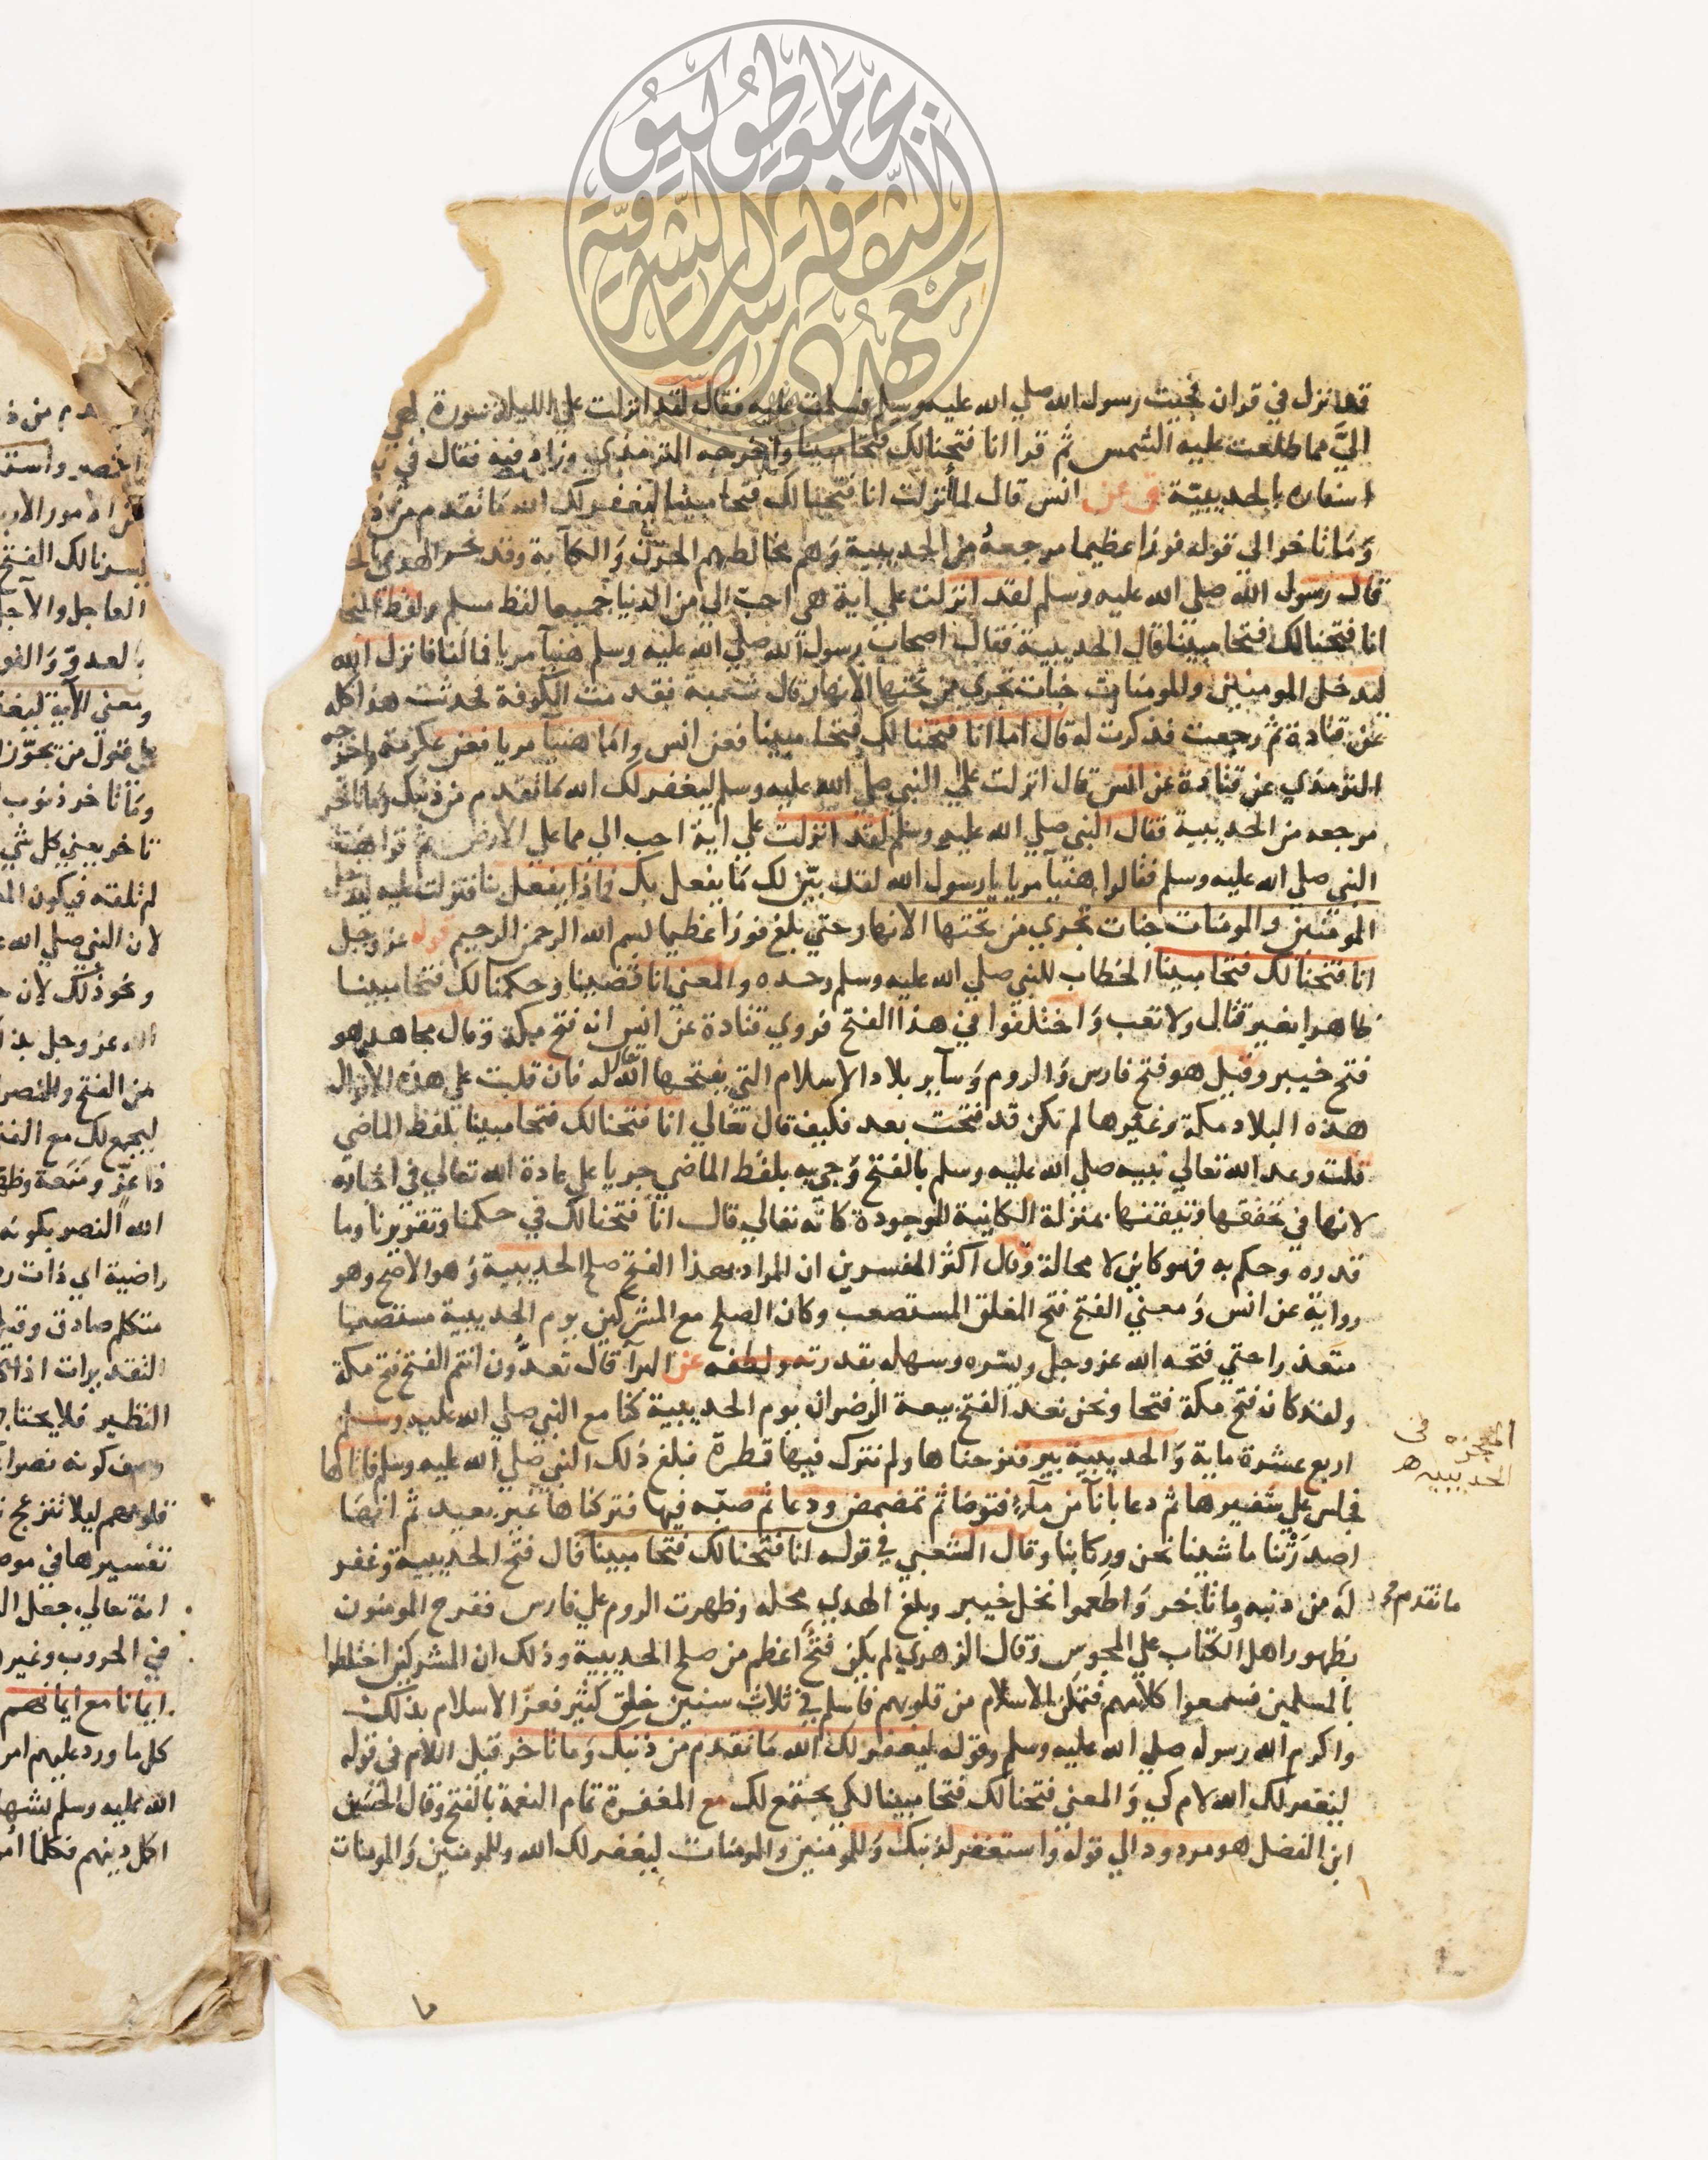 قد نزل في قران فجيت رسول الله صلي الله عليه وسلم فسلمت عليه فقال لقد انزلت علي الليلة سورة لهي
اليَّ مما طلعت عليه الشمس ثم قرا انا فتحنا لك فتحا مبينا واخرجه الترمذي وزاد فيه فقال في
اسفاره بالحديبية ق عن انس قال لما نزلت انا فتحنا لك فتحا مبينا ليغفر لك الله ما تقدم من
وما تاخر الي قوله فوزا عظيما مرجعه من الحديبية وهم يخالطهم الحزن والكآبة وقد نحر الهدي
قال رسول الله صلي الله عليه وسلم لقد انزلت علي اية هي احب الي من الدنيا جميعا لفظ مسلم ولفظ
انا فتحنا لك فتحا مبينا قال الحديبية فقال اصحاب رسول الله صلي الله عليه وسلم هنيآ مريا فما لنا فانزل الله
ليدخل المومنين والمومنات جنات تجري من تحتها الانهار قال شعبة فقدمت الكوفة فحدثت هذا كله
عن قتادة ثم رجعت فذكرت له قال اما انا فتحنا لك فتحا مبينا فعن انس واما هنيآ مريا فعن عكرمة واخرجه
الترمذي عن قتادة عن انس قال انزلت علي النبي صلي الله عليه وسلم ليغفر لك الله ما تقدم من ذنبك وما تاخر
مرجعه من الحديبية فقال النبي صلي الله عليه وسلم لقد انزلت علي اية احب الي مما علي الارض ثم قراها
النبي صلي الله عليه وسلم فقالوا هنيآ مريا يا رسول الله لقد بيّن لك ما يفعل بك فماذا يفعل بنا فنزلت عليه ليدخل
المومنين والمومنات جنات تجري من تحتها الانهار حتي بلغ فوزا عظيما بسم الله الرحمن الرحيم قوله عز وجل
انا فتحنا لك فتحا مبينا الخطاب للنبي صلي الله عليه وسلم وحده والمعني انا قضينا وحكمنا لك فتحا مبينا
ظاهرا بغير قتال ولا تعب واختلفوا في هذا الفتح فروي قتادة عن انس انه فتح مكة وقال مجاهد هو
فتح خيبر وقيل هو فتح فارس والروم وساير بلاد الاسلام التي يفتحها الله له فان قلت علي هذه الاقوال
هذه البلاد مكة وغيرها لم تكن قد فتحت بعد فكيف قال تعالي انا فتحنا لك فتحا مبينا بلفظ الماضي
قلت وعد الله تعالي نبيه صلي الله عليه وسلم بالفتح وجي به بلفظ الماضي جريا علي عادة الله تعالي في اخباره
لانها في تحققها وتيقنها بمنزلة الكاينة الموجودة كانه تعالي قال انا فتحنا لك في حكمنا وتقديرنا وما
قدره وحكم به فهو كاين لا محالة وقال اكثر المفسرين ان المراد بهذا الفتح صلح الحديبية وهو الاصح وهو
رواية عن انس ومعني الفتح فتح المغلق المستصعب وكان الصلح مع المشركين يوم الحديبية مستصعبا
متعذرا حتي فتحه الله عز وجل ويسره وسهله بقدرته ولطفه عن البرآ قال تعدون انتم الفتح فتح مكة
ولقد كان فتح مكة فتحا ونحن نعد الفتح بيعة الرضوان يوم الحديبية كنا مع النبي صلي الله عليه وسلم
اربع عشرة ماية والحديبية بير فنزحناها ولم نترك فيها قطرة فبلغ ذلك النبي صلي الله عليه وسلم فاتاها
فجلس علي شفيرها ثم دعا بانآ من مآء فتوضا ثم تمضمض ودعا ثم صبه فيها فتركناها غير بعيد ثم انها
اصدرتنا ما شينا نحن وركابنا وقال الشعبي في قوله انا فتحنا لك فتحا مبينا قال فتح الحديبية وغفر
له من ذنبه وما تاخر واطعموا نخل خيبر وبلغ الهدي محله وظهرت الروم علي فارس ففرح المومنون
بظهور اهل الكتاب علي المجوس وقال الزهري لم يكن فتح اعظم من صلح الحديبية وذلك ان المشركين اختلطوا
بالمسلمين فسمعوا كلامهم فتمكن الاسلام من قلوبهم فاسلم في ثلاث سنين خلق كثير فعزّ الاسلام بذلك
واكرم الله رسوله صلي الله عليه وسلم وقوله ليغفر لك الله ما تقدم من ذنبك وما تاخر قيل اللام في قوله
ليغفر لك الله لام كي والمعني فتحنا لك فتحا مبينا لكي يجتمع لك مع المغفرة تمام النعمة بالفتح وقال الحسين
ابن الفضل هو مردود الي قوله واستغفر لذنبك وللمومنين والمومنات ليغفر لك الله وللمومنين والمومنات
المعجزة في
الحديبية
ما تقدم
من ذ
واستغ
الامور الار
يسرنا لك الفتح
العاجل والآجل
بالعدو والفو
ومعني الآية ليغفر
علي قول من يجوّز
وما تاخر ذنوب
تاخر يعني كل شي
لم تلقه فيكون
لان النبي صلي الله
ونحو ذلك لان
الله عز وجل
من الفتح والنصر
ليجمع لك مع الفتح
ذا عزّ ومنعة وظهور
الله النصر بكونه
راضية اي ذات
متكلم صادق وقيل
التقديرات اذا
النظير فلا يحتاج
وصف كونه نصرا
قلوبهم ليلا تنزعج
تفسيرها في موضع
انه تعالي جعل
في الحروب وغير
ايمانا مع ايمانهم
كل ما ورد عليهم امر
الله عليه وسلم بشهادة
اكمل دينهم فكلما
جامعة طوكيو
معهد دراسات الثقافة الشرقية